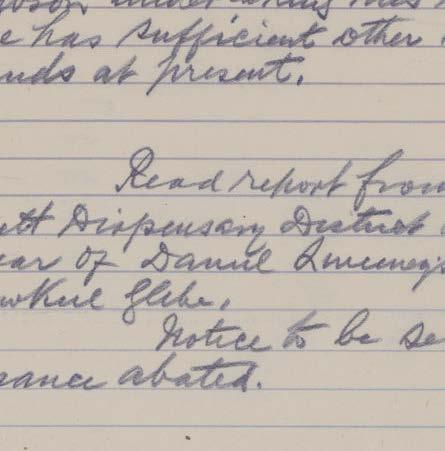 e has sufficient other
nds at present.
Read report from
tt Dispensary District
ear of Daniel Sweeney's
wkul Glebe.
Notice to be se
sance abated.